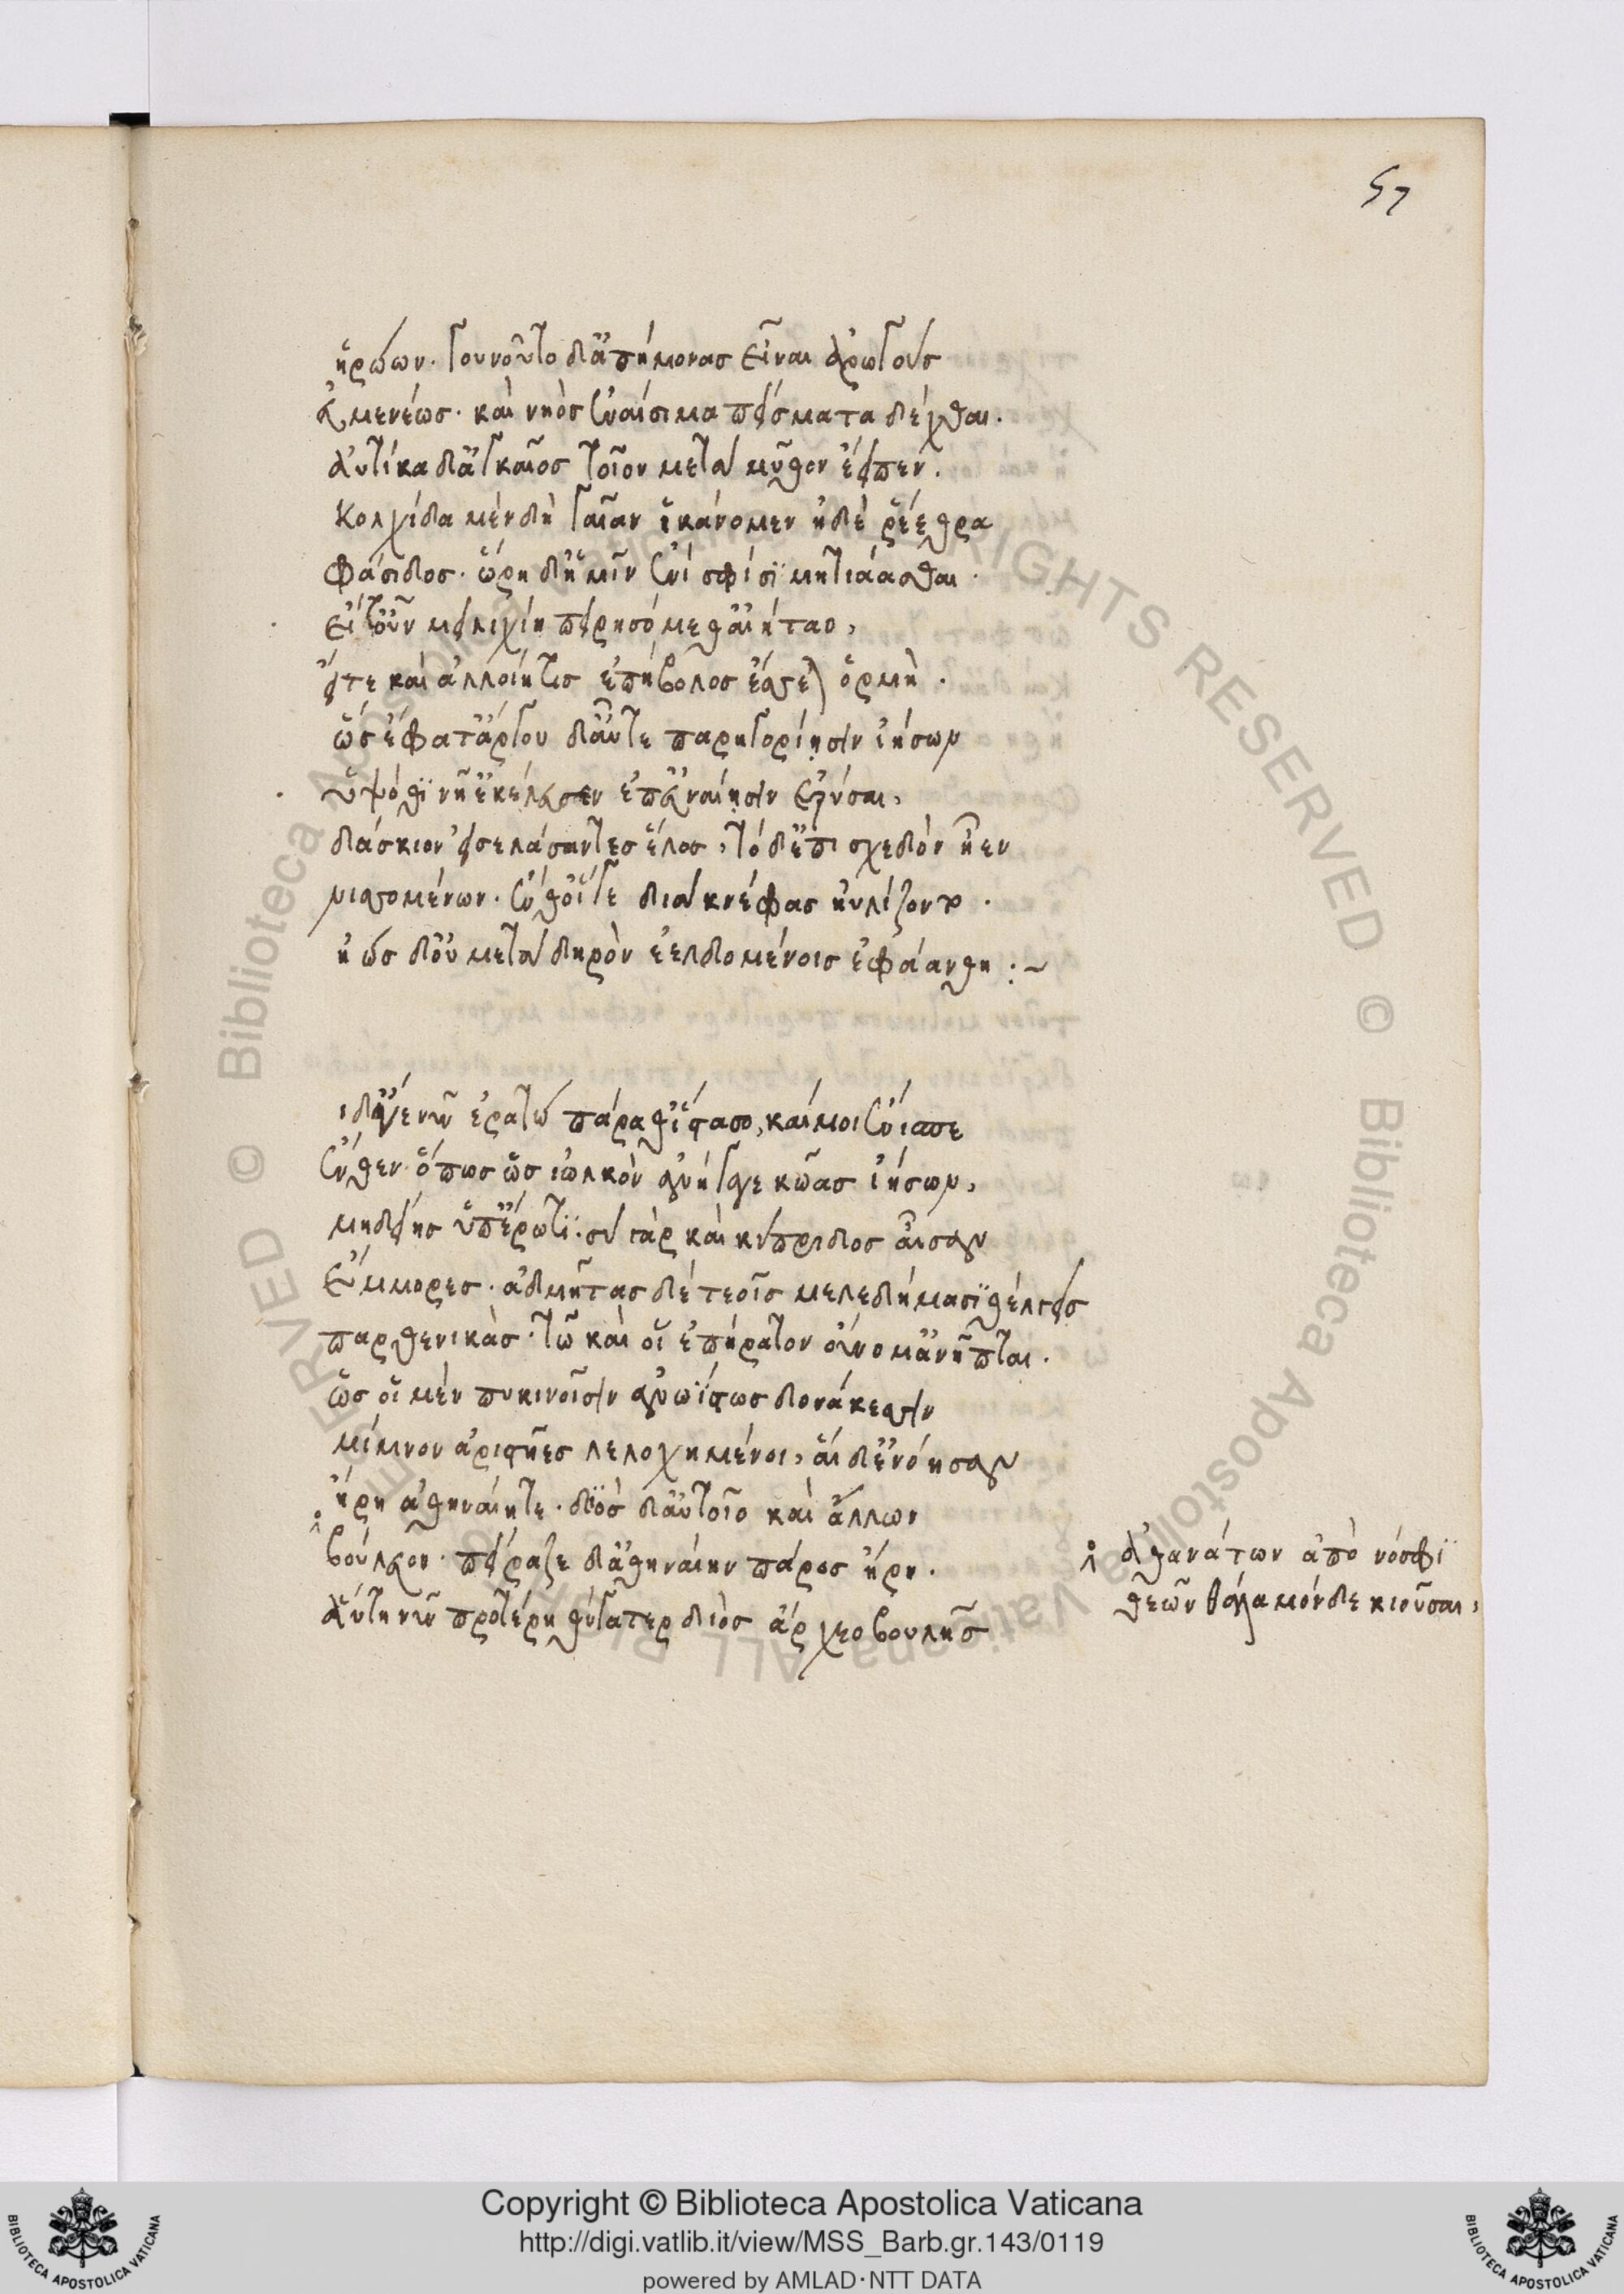 57
ἡρώων· γουνοῦτο δ' ἀπήμονας εἶναι ἀρωγοὺς
εὐμενέως· καὶ νηὸς ἐναίσιμα πείσματα δέχθαι.
αὐτίκα δ' ἀγκαῖος τοῖον μετὰ μῦθον ἔειπεν.
κολχίδα μὲν δὴ γαῖαν ἱκάνομεν ἠδὲ ῥέεθρα
φάσιδος· ὥρη δ' ἡμῖν ἐνὶ σφίσι μητιάασθαι.
εἴτ' οὖν μειλιχίῃ πειρησόμεθ' αἰήταο,
εἴτε καὶ ἀλλοίη τις ἐπήβολος ἔσσεται ὁρμή.
ὣς ἔφατ' ἄργου δ' αὖτε παρηγορίῃσιν ἰήσων
ὑψόθι νῆ' ἐκέλευσεν ἐπ' εὐναίῃσιν ἐρύσαι,
δάσκιον εἰσελάσαντες ἕλος, τὸ δ' ἐπισχεδὸν ἦεν
νισσομένων· ἔνθ' οἵγε διὰ κνέφας ηὐλίζοντο.
ἠὼς δ' οὐ μετὰ δηρὸν ἐελδομένοις ἐφαάνθη :~
ιδ' ἄγε νῦν ἐρατὼ πάρα θ' ἵστασο, καί μοι ἔνισπε
ἔνθεν ὅπως ὡς ἰωλκὸν ἀνήγαγε κῶας ἰήσων,
μηδείης ὑπ' ἔρωτι· σὺ γὰρ καὶ κύπριδος αἶσαν
ἔμμορες· ἀδμῆτας δὲ τεοῖς μελεδήμασι θέλγεις
παρθενικάς· τῷ καὶ οἱ ἐπήρατον οὔνομ' ἀνῆπται.
ὣς οἱ μὲν πυκινοῖσιν ἀνωίστως δονάκεσσιν
μίμνον ἀριστῆες λελοχημένοι, αἱ δ' ἐνόησαν
ἥρη ἀθηναίη τε· διὸς δ' αὐτοῖο καὶ ἄλλων
βούλευον· πείραζε δ' ἀθηναίην πάρος ἥρη.
ἀθανάτων ἀπὸ νόσφι
θεῶν θάλαμόνδε κιοῦσαι,
αὐτὴ νῦν προτέρη θύγατερ διὸς ἄρχεο βουλῆς
Copyright © Biblioteca Apostolica Vaticana
http://digi.vatlib.it/view/MSS_Barb.gr.143/0119
powered by AMLAD·NTT DATA
BIBLIOTECA APOSTOLICA VATICANA
BIBLIOTECA APOSTOLICA VATICANA
© Biblioteca Apostolica Vaticana ALL RIGHTS RESERVED © Biblioteca Apostolica Vaticana ALL RIGHTS RESERVED